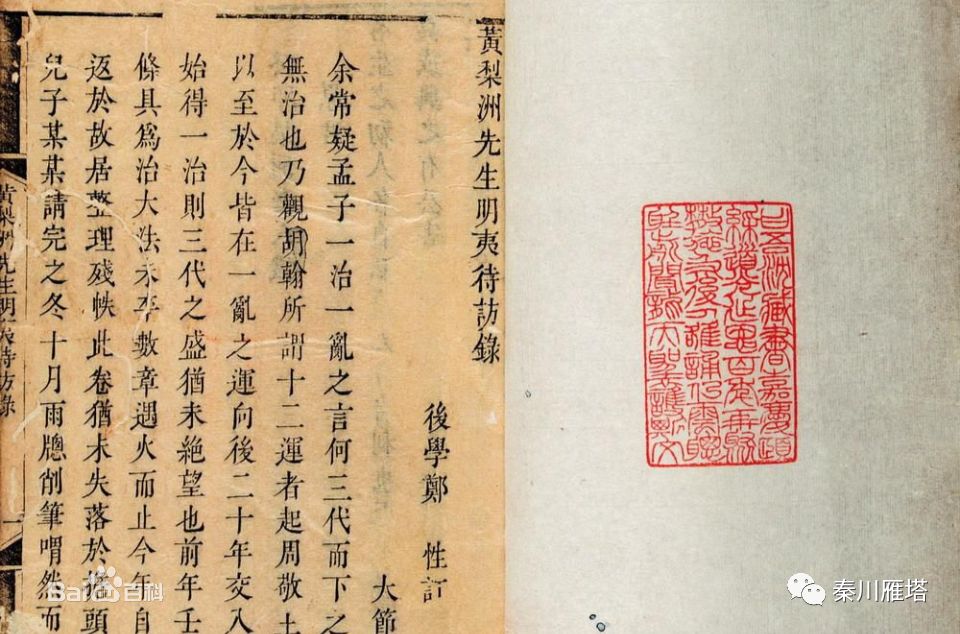 黃梨洲先生明夷待訪錄
後學鄭 性訂
大節
余常疑孟子一治一亂之言何三代而下之
無治也乃觀胡翰所謂十二運者起周敬王
以至於今皆在一亂之運向後二十年交入
始得一治則三代之盛猶未絕望也前年壬
條具爲治大法未卒數章遇火而止今年自
返於故居整理殘帙此卷猶未失落於擔頭
兒子某某請完之冬十月雨牕削筆喟然而
黃梨洲先生明夷待訪錄
一
Baidu百科
秦川雁塔